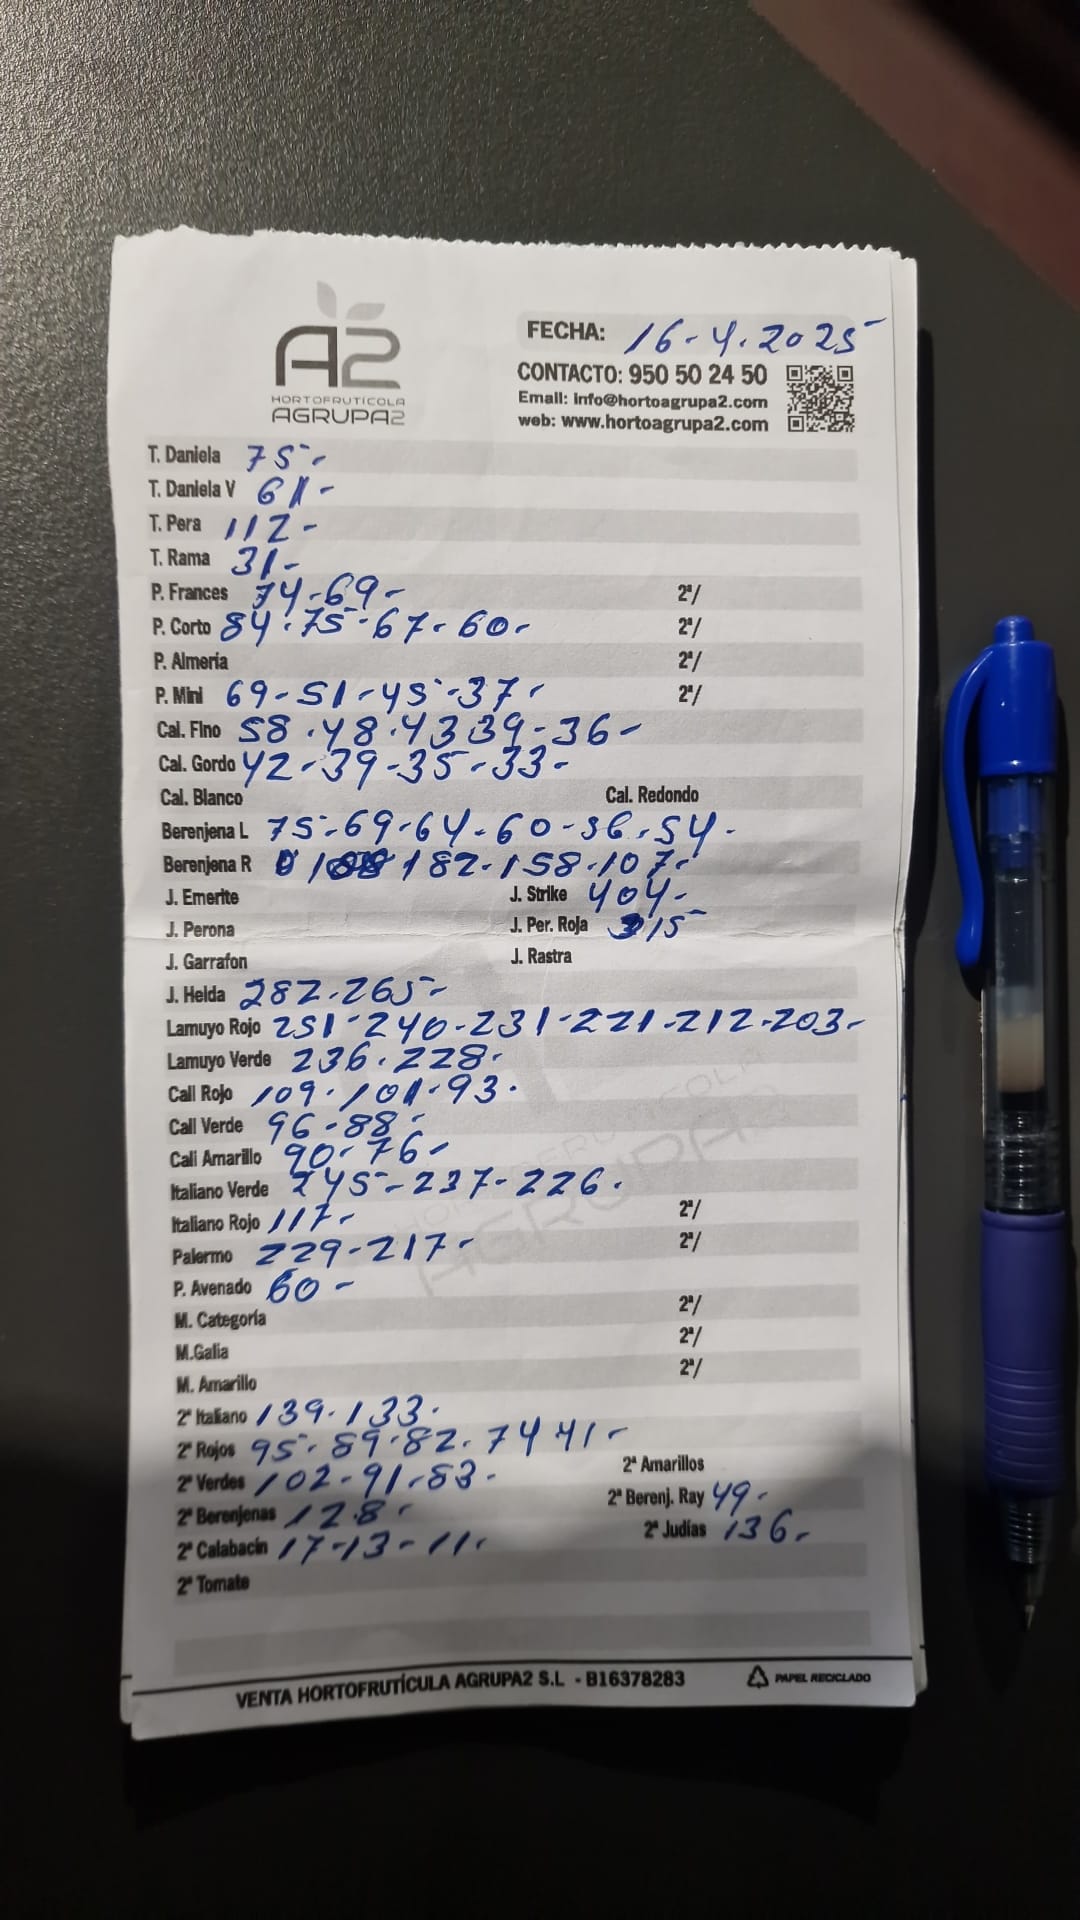 A2
HORTOFRUTÍCOLA
AGRUPA2
FECHA: 16-4-2025
CONTACTO: 950 50 24 50
Email: info@hortoagrupa2.com
web: www.hortoagrupa2.com
T. Daniela 75-
T. Daniela V 61-
T. Pera 112-
T. Rama 31-
P. Frances 74-69- 2ª/
P. Corto 84-75-67-60- 2ª/
P. Almería 2ª/
P. Mini 69-51-45-37- 2ª/
Cal. Fino 58-48-43 39-36-
Cal. Gordo 42-39-35-33-
Cal. Blanco Cal. Redondo
Berenjena L 75-69-64-60-56-54-
Berenjena R 182-158-107-
J. Emerite J. Strike 404-
J. Perona J. Per. Roja 315
J. Garrafon J. Rastra
J. Helda 282-265-
Lamuyo Rojo 251-240-231-221-212-203-
Lamuyo Verde 236-228-
Cali Rojo 109-101-93-
Cali Verde 96-88-
Cali Amarillo 90-76-
Italiano Verde 245-237-226-
Italiano Rojo 117- 2ª/
Palermo 229-217- 2ª/
P. Avenado 60-
M. Categoría 2ª/
M.Galia 2ª/
M. Amarillo 2ª/
2ª Italiano 139-133-
2ª Rojos 95-89-82-74 41-
2ª Verdes 102-91-83- 2ª Amarillos
2ª Berenjenas 12-8- 2ª Berenj. Ray 49-
2ª Calabacín 17-13-11- 2ª Judías 136-
2ª Tomate
VENTA HORTOFRUTÍCULA AGRUPA2 S.L - B16378283 PAPEL RECICLADO